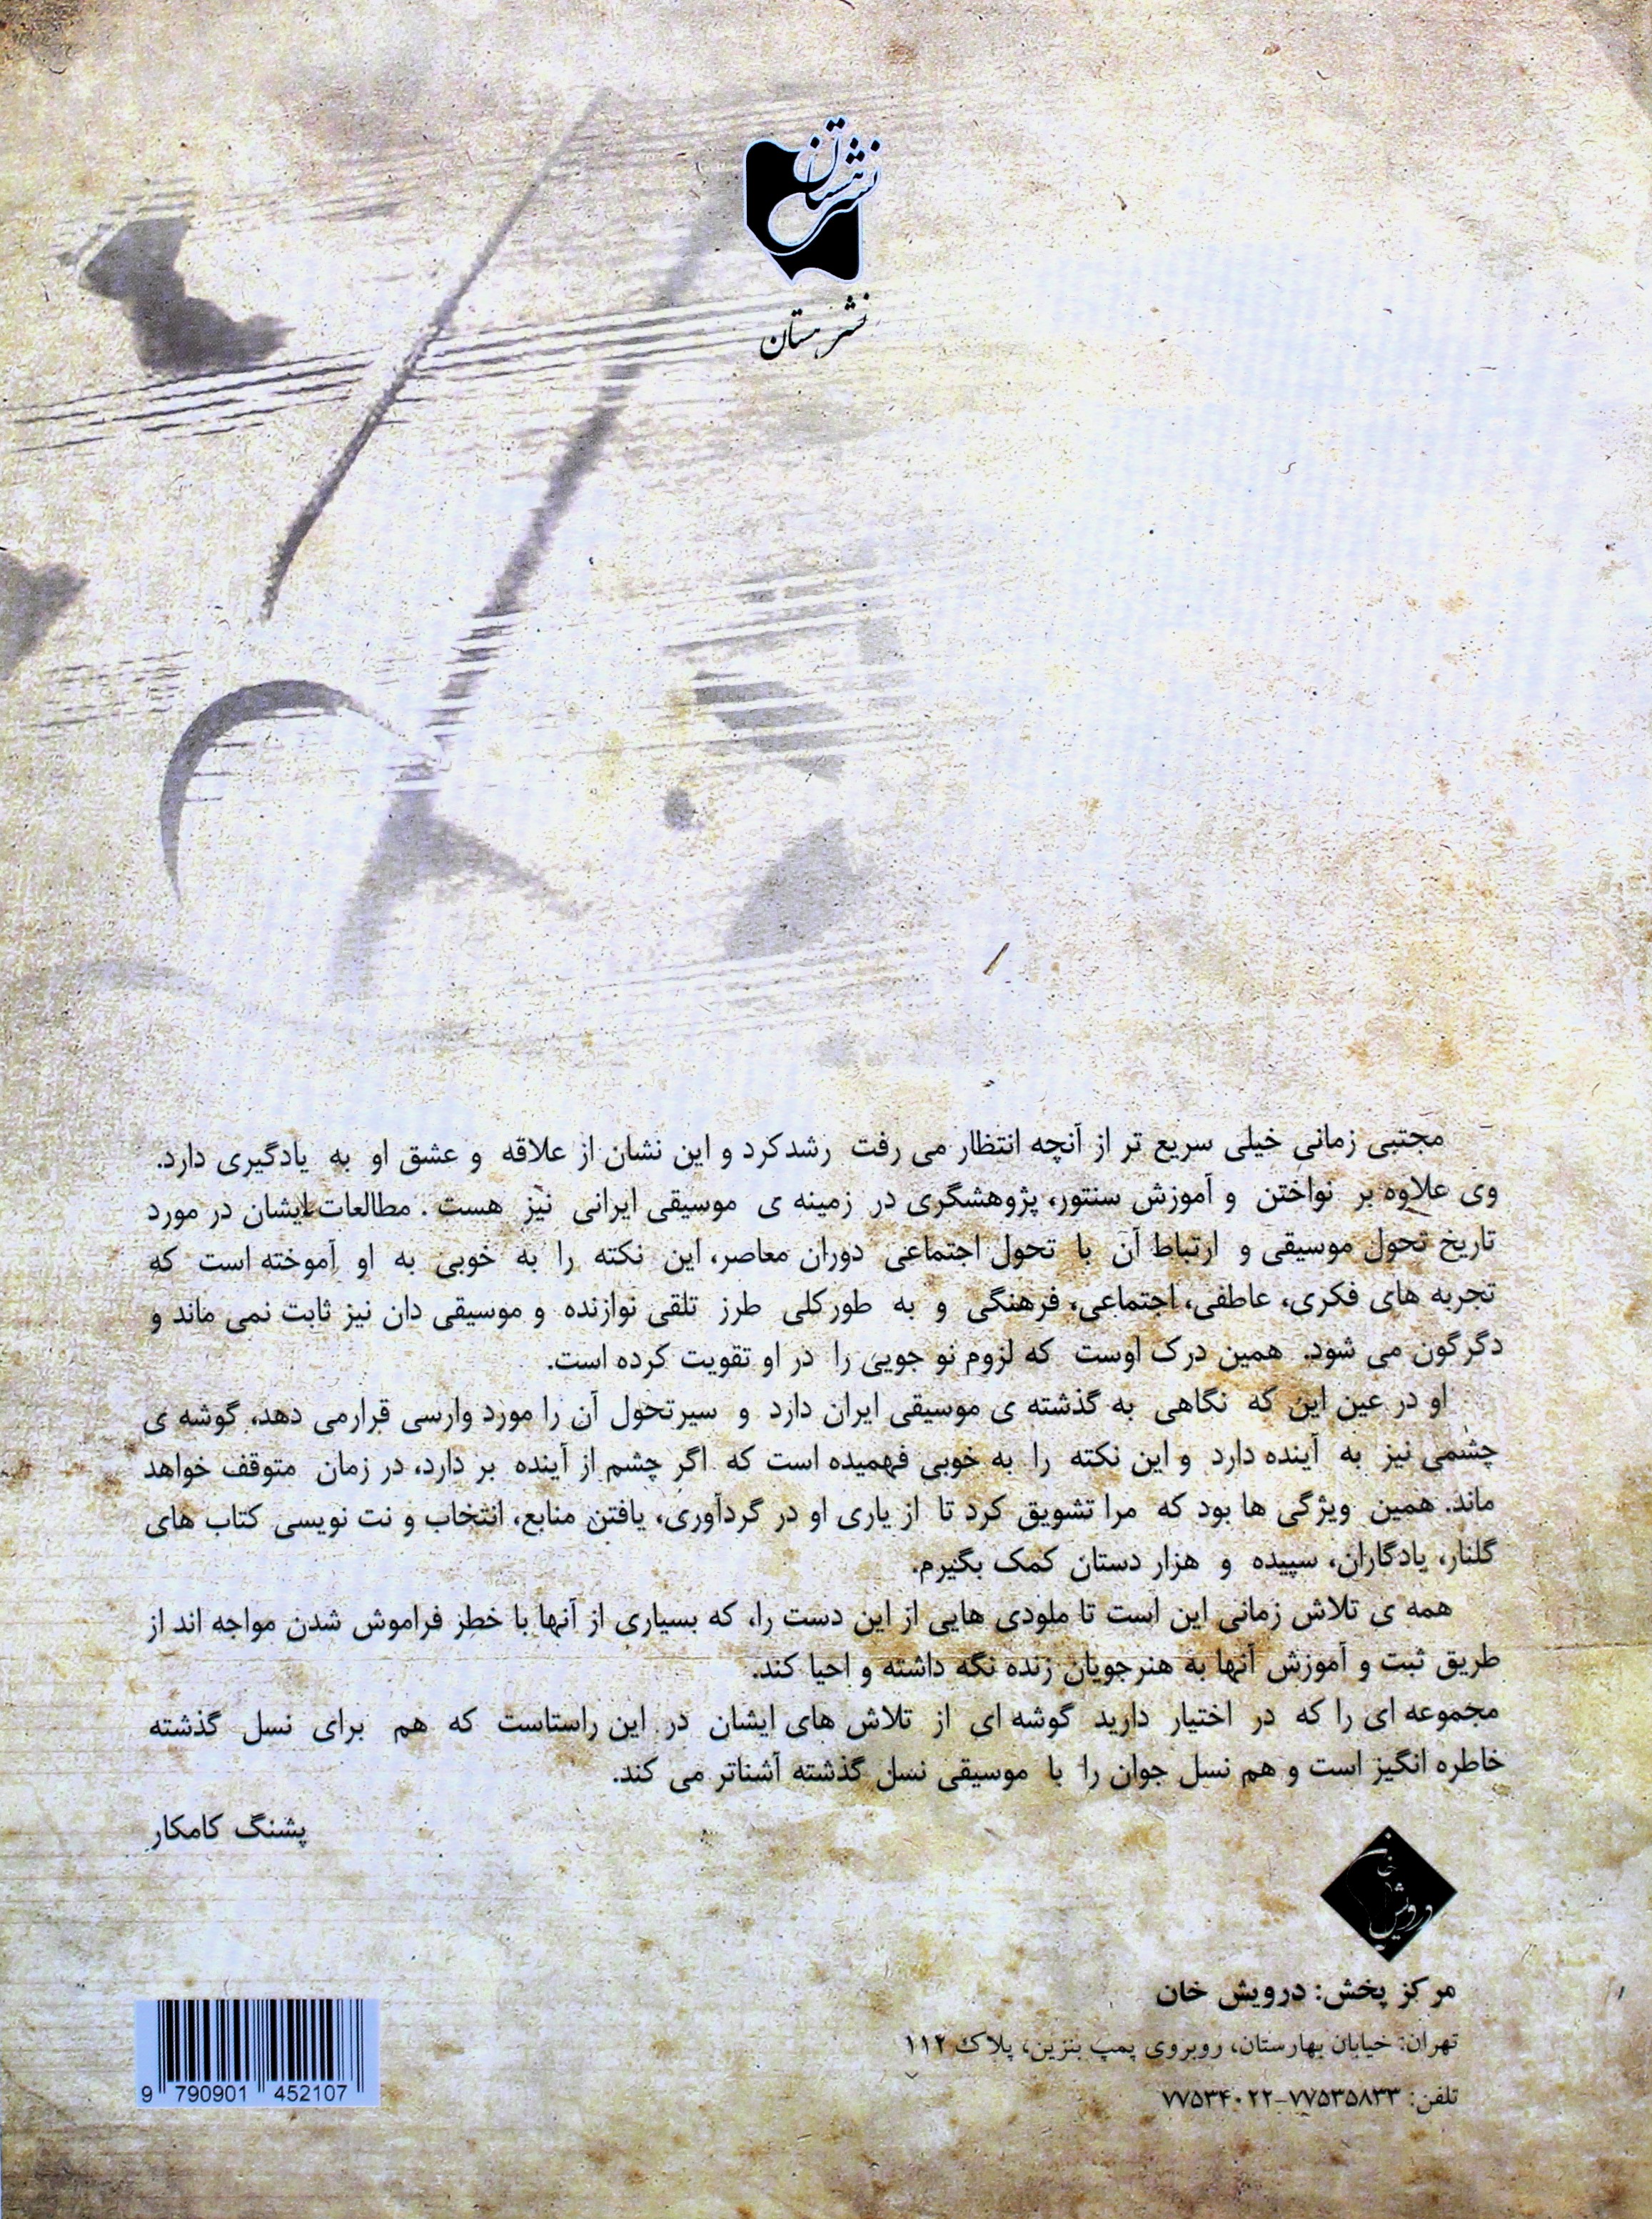 نشر هستان
نشر هستان
مجتبی زمانی خیلی سریع تر از آنچه انتظار می رفت رشدکرد و این نشان از علاقه و عشق او به یادگیری دارد.
وی علاوه بر نواختن و آموزش سنتور، پژوهشگری در زمینه ی موسیقی ایرانی نیز هست. مطالعات ایشان در مورد
تاریخ تحول موسیقی و ارتباط آن با تحول اجتماعی دوران معاصر، این نکته را به خوبی به او آموخته است که
تجربه های فکری، عاطفی، اجتماعی، فرهنگی و به طورکلی طرز تلقی نوازنده و موسیقی دان نیز ثابت نمی ماند و
دگرگون می شود. همین درک اوست که لزوم نو جویی را در او تقویت کرده است.
او در عین این که نگاهی به گذشته ی موسیقی ایران دارد و سیرتحول آن را مورد وارسی قرارمی دهد، گوشه ی
چشمی نیز به آینده دارد و این نکته را به خوبی فهمیده است که اگر چشم از آینده بر دارد، در زمان متوقف خواهد
ماند. همین ویژگی ها بود که مرا تشویق کرد تا از یاری او در گردآوری، یافتن منابع، انتخاب و نت نویسی کتاب های
گلنار، یادگاران، سپیده و هزار دستان کمک بگیرم.
همه ی تلاش زمانی این است تا ملودی هایی از این دست را، که بسیاری از آنها با خطر فراموش شدن مواجه اند از
طریق ثبت و آموزش آنها به هنرجویان زنده نگه داشته و احیا کند.
مجموعه ای را که در اختیار دارید گوشه ای از تلاش های ایشان در این راستاست که هم برای نسل گذشته
خاطره انگیز است و هم نسل جوان را با موسیقی نسل گذشته آشناتر می کند.
پشنگ کامکار
درویش خان
مرکز پخش: درویش خان
تهران: خیابان بهارستان، روبروی پمپ بنزین، پلاک ۱۱۲
تلفن: ۷۷۵۳۵۸۳۳-۷۷۵۳۴۰۲۲
9 790901 452107